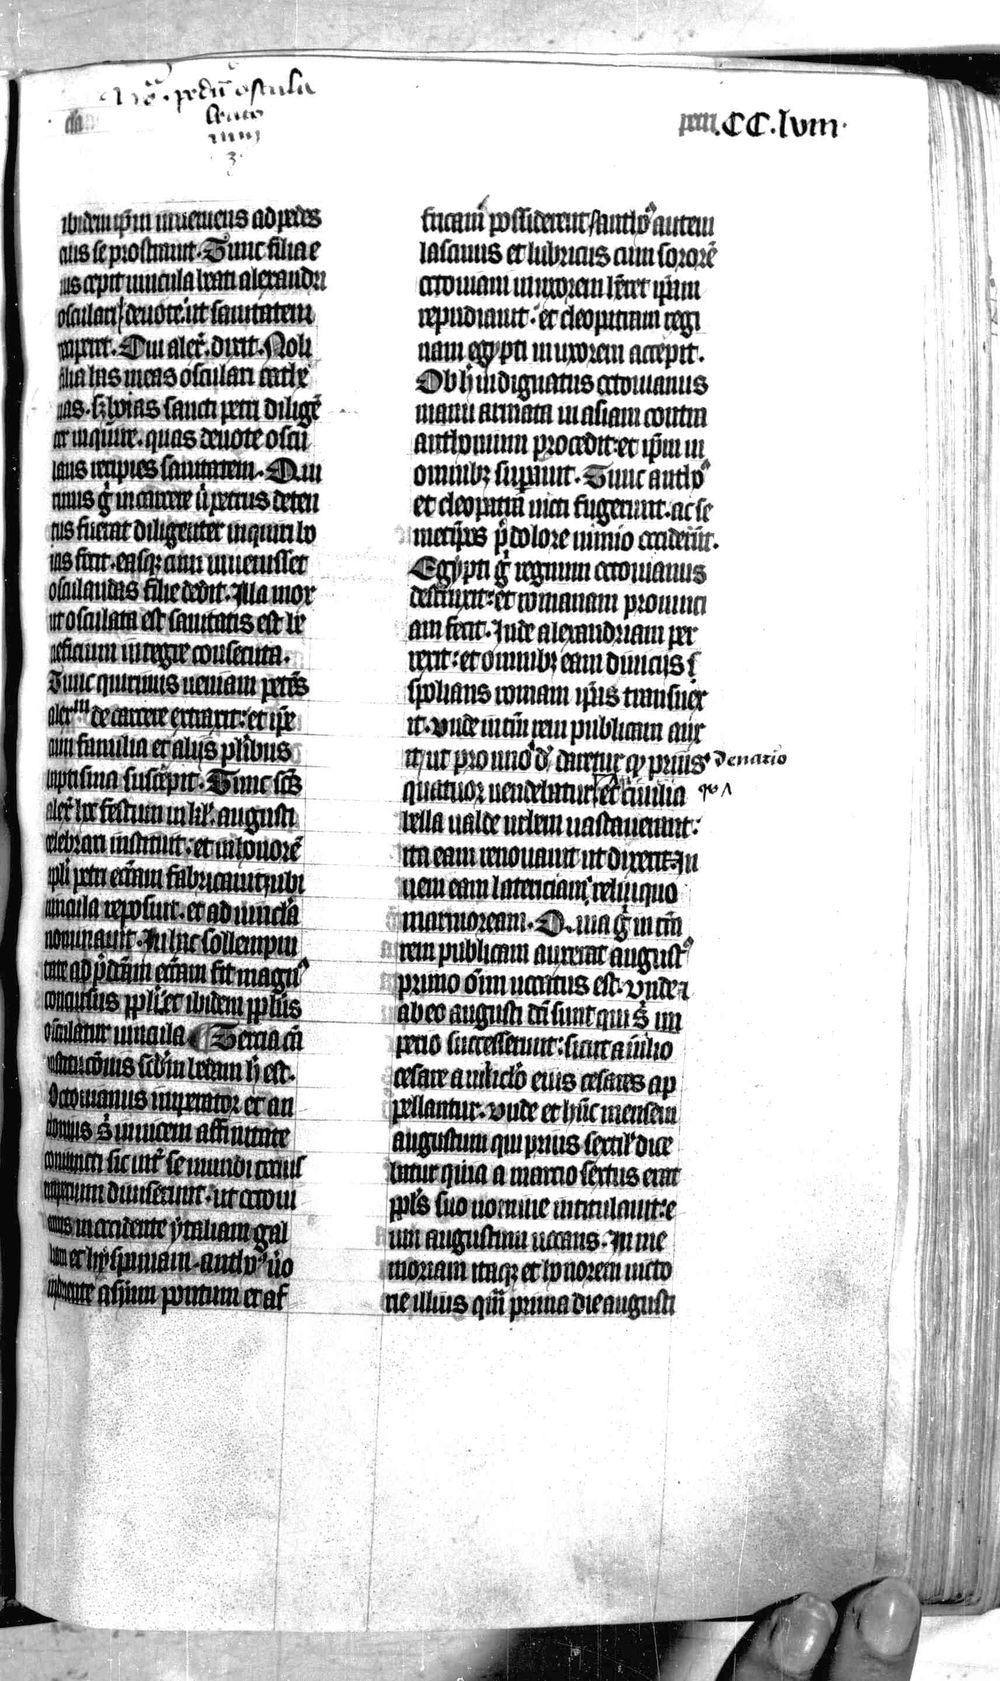 petri .CC.lviii.
ibidem ip̄m inueniens ad pedes
eius se prostrauit. Tunc filia e
ius cepit uincula beati alexandri
osculari deuote ut sanitatem
reciperet. Cui alex̄. dixit. Noli
filia has meas osculari cathe
nas. s; boias sancti petri diligē
ter inquire. quas deuote oscu
lans recipies sanitatem. Qui
rinus g̊ in carcere u̇ petrus deten
tus fuerat diligenter inquiri bo
ias fecit. easq; cum inuenisset
osculandas filie dedit. Illa mox
ut osculata est sanitatis est be
neficium integre consecuta.
Tunc quirinus ueniam petēs
alexm de carcere extraxit: et ip̄e
cum familia et alijs plib̄us
baptisma suscepit. Tunc sc̄s
alex̄ hc̄ festum in kl̄. augusti
celebrari instituit: et in honorē
apl̄i petri ecc̄am fabricauit ubi
uincula reposuit. et ad uincl̄a
nominauit. In hac sollempni
tate ad p̄dc̄am ecc̄am fit magn9
concursus ppl̄i. et ibidem ppl̄us
osculatur uincula Tercia cā
institucōnis sc̄dm bedam h̄ est.
Octouianus imperator et an
thonius s̄ inuicem affinitate
coniuncti sic int̄ se mundi tocius
imperium diuiserunt. ut octoui
anus in occidente ytaliam gal
liam et hyspaniam. antho9 u̇o
in oriente asiam pontum et af
fricam possiderent. antho9 autem
lasciuus et lubricus cum sororē
octouiani in uxorem hēret ip̄am
repudiauit: et cleopatram regi
nam egypti in uxorem accepit.
Ob h̄ indignatus octouianus
manu armata in asiam contra
anthonium procedit: et ip̄m in
omnib; supauit. Tunc antho9
et cleopatra uicti fugerunt. ac se
metip̄os p̄ dolore nimio occiderūt.
Egypti g̊ regnum octouianus
destruxit: et romanam prouinci
am fecit. Inde alexandriam per
rexit: et omnib; eam diuicijs
spolians romam ip̄as transuex
it. unde intm̄ rem publicam aux
it ut pro uno d̄ daretur q̄ prius denario
quatuor uendebatur et ciuilia
bella ualde urbem uastauerant:
ita eam renouauit ut diceret. In
ueni eam latericiam relinquo
marmoream. Quia g̊ in tm̄
rem publicam auxerat august9
primo om̄ uocatus est. unde
ab eo augusti dc̄i sunt qui s̄ im
perio successerunt: sicut a iulio
cesare auūclo eius cesares ap
pellantur. unde et hūc mensem
augustum qui prius sextil̄ dice
batur quia a marcio sextus erat
ppl̄s suo nomine intitulauit: e
um augustum uocans. In me
moriam itaq; et honorem uicto
rie illius quā prima die augusti